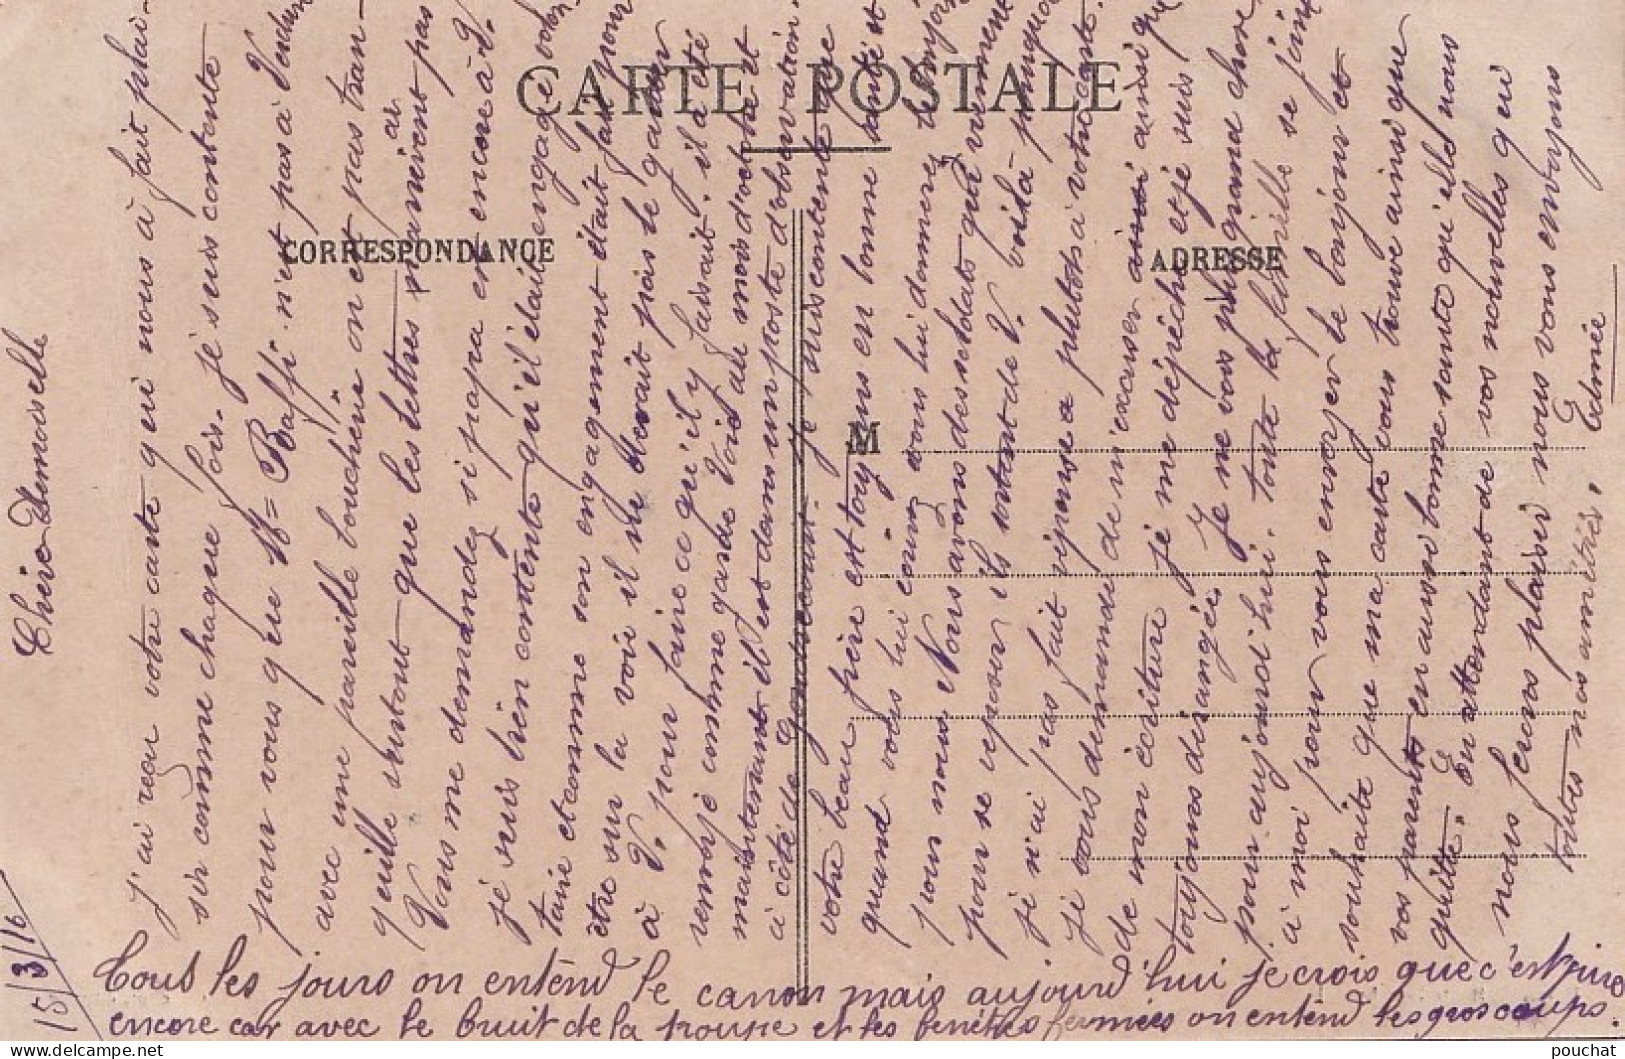 15/3/16
Chère Demoiselle
CARTE POSTALE
CORRESPONDANCE
ADRESSE
M
J'ai reçu votre carte qui nous à fait plai-
sir comme chaque fois. Je suis contente
pour vous que Mr Raffi n'est pas à Verdun
avec une pareille boucherie on est pas tran-
quille surtout que les lettres n'arrivent pas
Vous me demandez si papa est encore à V.
je suis bien contente qu'il était engagé volon-
taire et comme son engagement était fait pour
être sur la voie il ne devait pas le garder
à V. pour faire ce qu'il y faisait. il a été
renvoyé comme garde Voie au mois d'octobre et
maintenant il est dans un poste d'observation
à côté de je suis contente que
votre beau frère est toujours en bonne santé et
quand vous lui écrivez vous lui donnerez le bonjour
pour nous. Nous avons des soldats qui viennent
pour se reposer ils sortent de V. voilà pourquoi
je n'ai pas fait réponse plutôt à votre carte.
Je vous demande de m'excuser ainsi que
de mon écriture je me dépêche et je suis
toujours dérangée. Je ne vois plus grand chose
pour aujourd'hui. toute la famille se joint
à moi pour vous envoyer le bonjour et
souhaite que ma carte vous trouve ainsi que
vos parents en aussi bonne santé qu'elle nous
quitte. En attendant de vos nouvelles qui
nous ferons plaisir nous vous envoyons
toutes nos amitiés.
Edmée
Tous les jours on entend le canon mais aujourd'hui je crois que c'est pire
encore car avec le bruit de la troupe et les fenêtres fermées on entend les gros coups.
pouchat